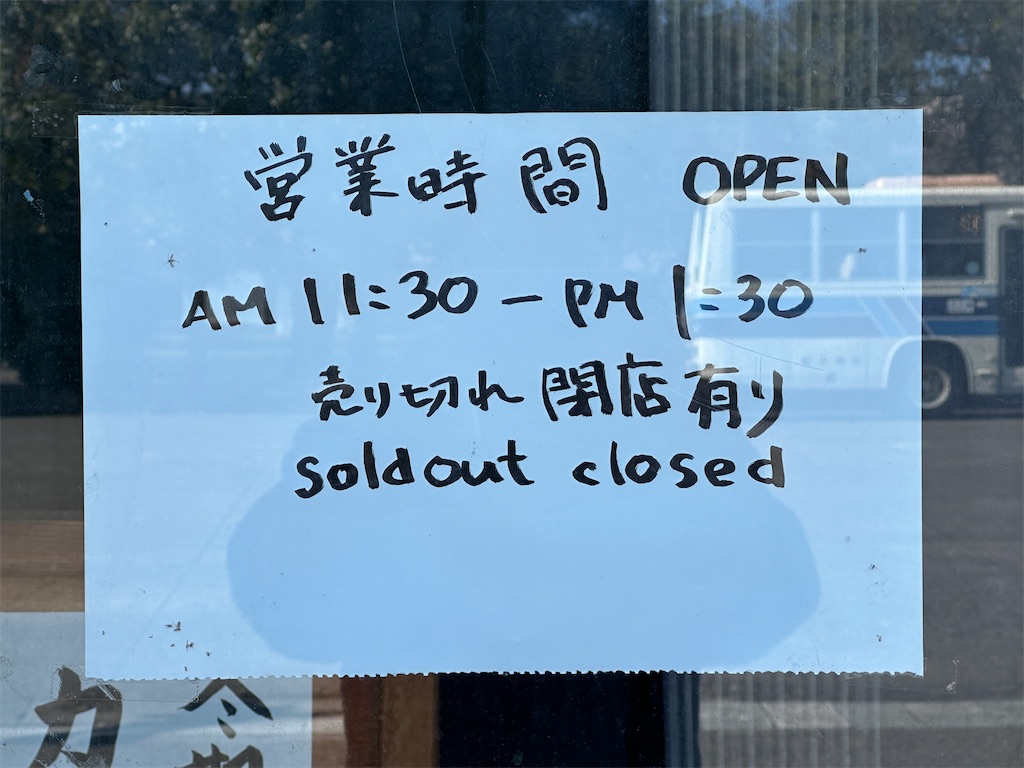 営業時間 OPEN
AM 11:30 - PM 1:30
売り切れ 閉店有り
soldout closed
力